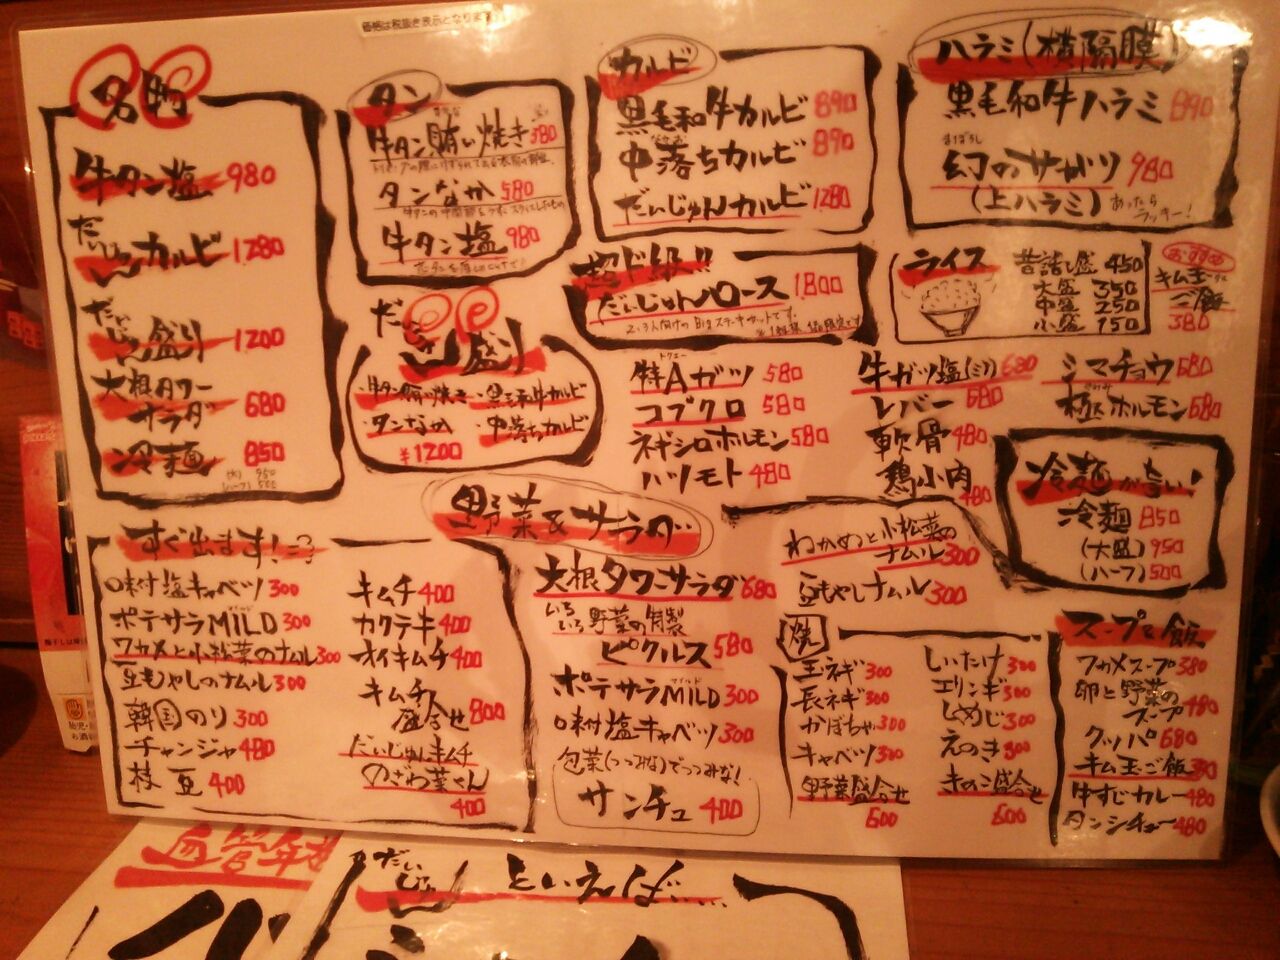 価格は税抜き表示となります
名物
牛タン塩 980
だいじゅんカルビ 1.280
だいじゅん盛り 1200
大根タワーサラダ 680
冷麺 850
(大) 950
(ハーフ) 500
タン
牛タン賄い焼き 380
タンなか 580
牛タンの中間部をうすくスライスしたもの
牛タン塩 980
だいじゅん盛り
・牛タン賄い焼き ・黒毛和牛カルビ
・タンなか ・中落ちカルビ
¥1200
カルビ
黒毛和牛カルビ 890
中落ちカルビ 890
だいじゅんカルビ 1.280
超ド級!!
だいじゅんロース 1.800
2、3人向けのBigステーキカットです。
ハラミ(横隔膜)
黒毛和牛ハラミ 890
まぼろし
幻のサガリ 980
(上ハラミ) あったらラッキー!
ライス
昔話し盛 450
大盛 350
中盛 250
小盛 150
おすすめ
キム玉ご飯
380
トクエー
特Aガツ 580
コブクロ 580
ネギシロホルモン 580
ハツモト 480
牛ガツ塩(ミノ) 680
レバー 680
軟骨 480
鶏小肉 480
シマチョウ 680
極ホルモン 680
冷麺が旨い!
冷麺 850
(大盛) 950
(ハーフ) 500
すぐ出ます!=3
味付塩キャベツ 300
ポテサラMILD 300
ワカメと小松菜のナムル 300
豆もやしのナムル 300
韓国のり 300
チャンジャ 480
枝豆 400
キムチ 400
カクテキ 400
オイキムチ 400
キムチ盛合せ 800
だいじゅんキムチ
のざわ菜くん
400
野菜&サラダ
大根タワーサラダ 680
いろいろ野菜の自製
ピクルス 580
ポテサラMILD 300
味付塩キャベツ 300
包菜(つつみな)でつつみな!
サンチュ 400
わかめと小松菜の
ナムル 300
豆もやしナムル 300
焼
玉ネギ 300
長ネギ 300
かぼちゃ 300
キャベツ 300
野菜盛合せ
600
しいたけ 300
エリンギ 300
しめじ 300
えのき 300
きのこ盛合せ
600
スープと飯
ワカメスープ 380
卵と野菜の
スープ 480
クッパ 680
キム玉ご飯 380
牛すじカレー 480
タンシチュー 480
だいじゅんといえば……